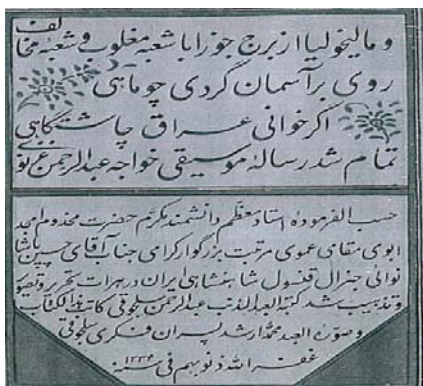 و مالیخولیا از برج جوزا با شعبه مغلوب و شعبه مخالف
روی بر آسمان کردی چو ماهی
اگر خوانی عراق چاشتگاهی
تمام شد رسالهٔ موسیقی خواجه عبدالرحمن غزنوی
حسب الفرموده استاد معظم دانشمند مکرم حضرت مخدوم امجد
ابوی مقامی عموی مرتبت بزرگوار گرامی جناب آقای حسین پاشا
نوائی جنرال قنسول شاهنشاهی ایران در هرات تحریر و تصویر
و تذهیب شد کتبه العبد المذنب عبدالرحمن سلجوقی کاتب هذا الکتاب
و صوره العبد محمد ارشد پسران فکری سلجوقی
غفر الله ذنوبهم فی سنه